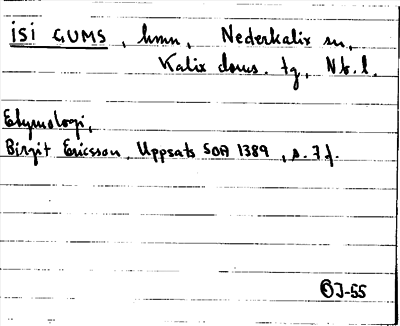 ISI GUMS, hmn, Nederkalix sn,
Kalix doms. tg, Nb. l.
Etymologi,
Birgit Ericsson, Uppsats SOA 1389, s. 7 f.
BJ-55